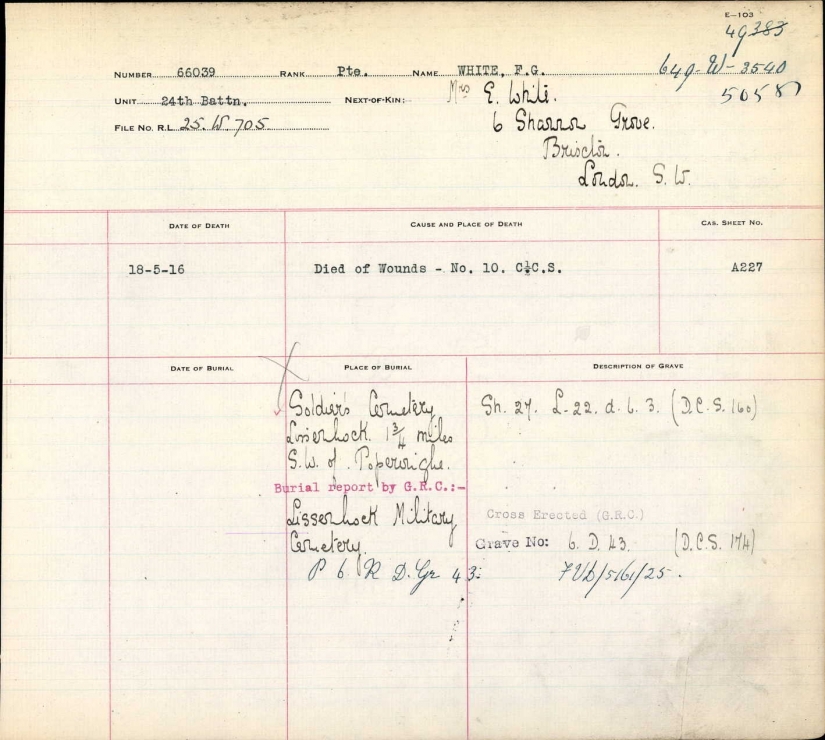 E-103
49383
NUMBER 66039 RANK Pte. NAME WHITE, F.G. 649-W-3540
UNIT 24th Battn. NEXT-OF-KIN: Mrs E. White. 50587
FILE NO. R.L. 25. W. 705 6 Shannon Grove.
Brixton.
London. S.W.
DATE OF DEATH CAUSE AND PLACE OF DEATH CAS. SHEET NO.
18-5-16 Died of Wounds - No. 10. C¼C.S. A227
DATE OF BURIAL PLACE OF BURIAL DESCRIPTION OF GRAVE
Soldier's Cemetery Sh. 27. L-22. d. 6. 3. (D.C.S. 160)
Lissenhock. 1¾ miles
S.W. of Poperinghe.
Burial report by G.R.C.:-
Lissenhock Military Cross Erected (G.R.C.)
Cemetery. Grave No: 6. D. 43. (D.C.S. 174)
P 6 R D. Gr 43.